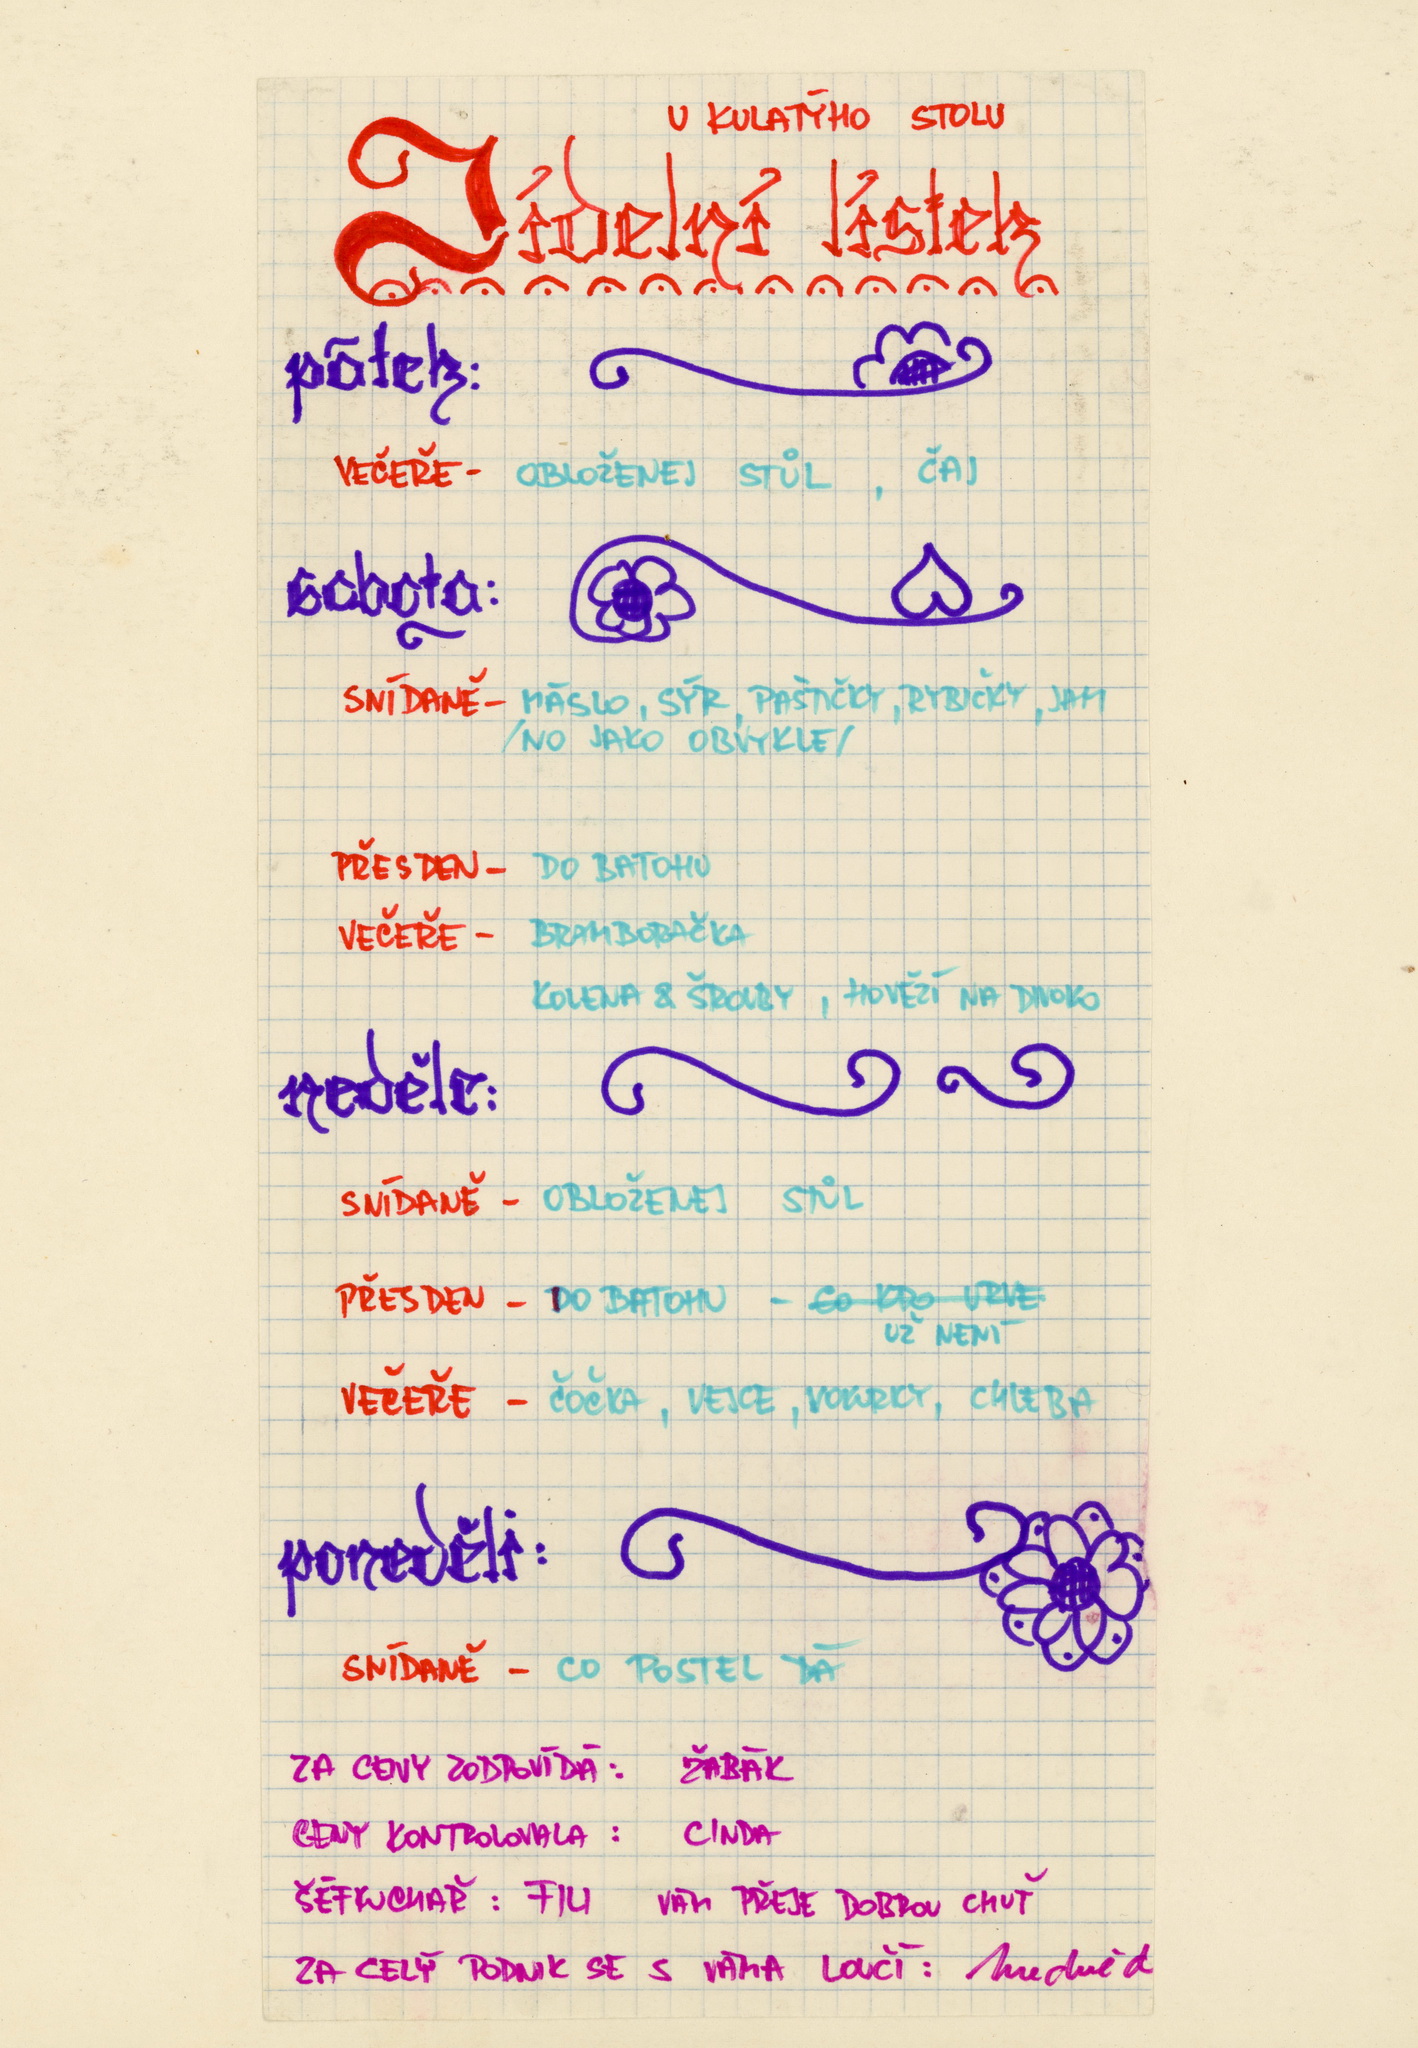 U KULATÝHO STOLU
Jídelní lístek
pátek:
VEČEŘE - OBLOŽENEJ STŮL, ČAJ
sobota:
SNÍDANĚ - MÁSLO, SÝR, PAŠTIČKY, RYBIČKY, JAM
/NO JAKO OBVYKLE/
PŘES DEN - DO BATOHU
VEČEŘE - BRAMBORAČKA
KOLENA & ŠROUBY, HOVĚZÍ NA DIVOKO
neděle:
SNÍDANĚ - OBLOŽENEJ STŮL
PŘES DEN - DO BATOHU - CO KDO URVE
UŽ NENÍ
VEČEŘE - ČOČKA, VEJCE, VOKURKY, CHLEBA
pondělí:
SNÍDANĚ - CO POSTEL DÁ
ZA CENY ZODPOVÍDÁ: ŽABÁK
CENY KONTROLOVALA: CINDA
ŠÉFKUCHAŘ: FILI VÁM PŘEJE DOBROU CHUŤ
ZA CELÝ PODNIK SE S VÁMA LOUČÍ: medvěd